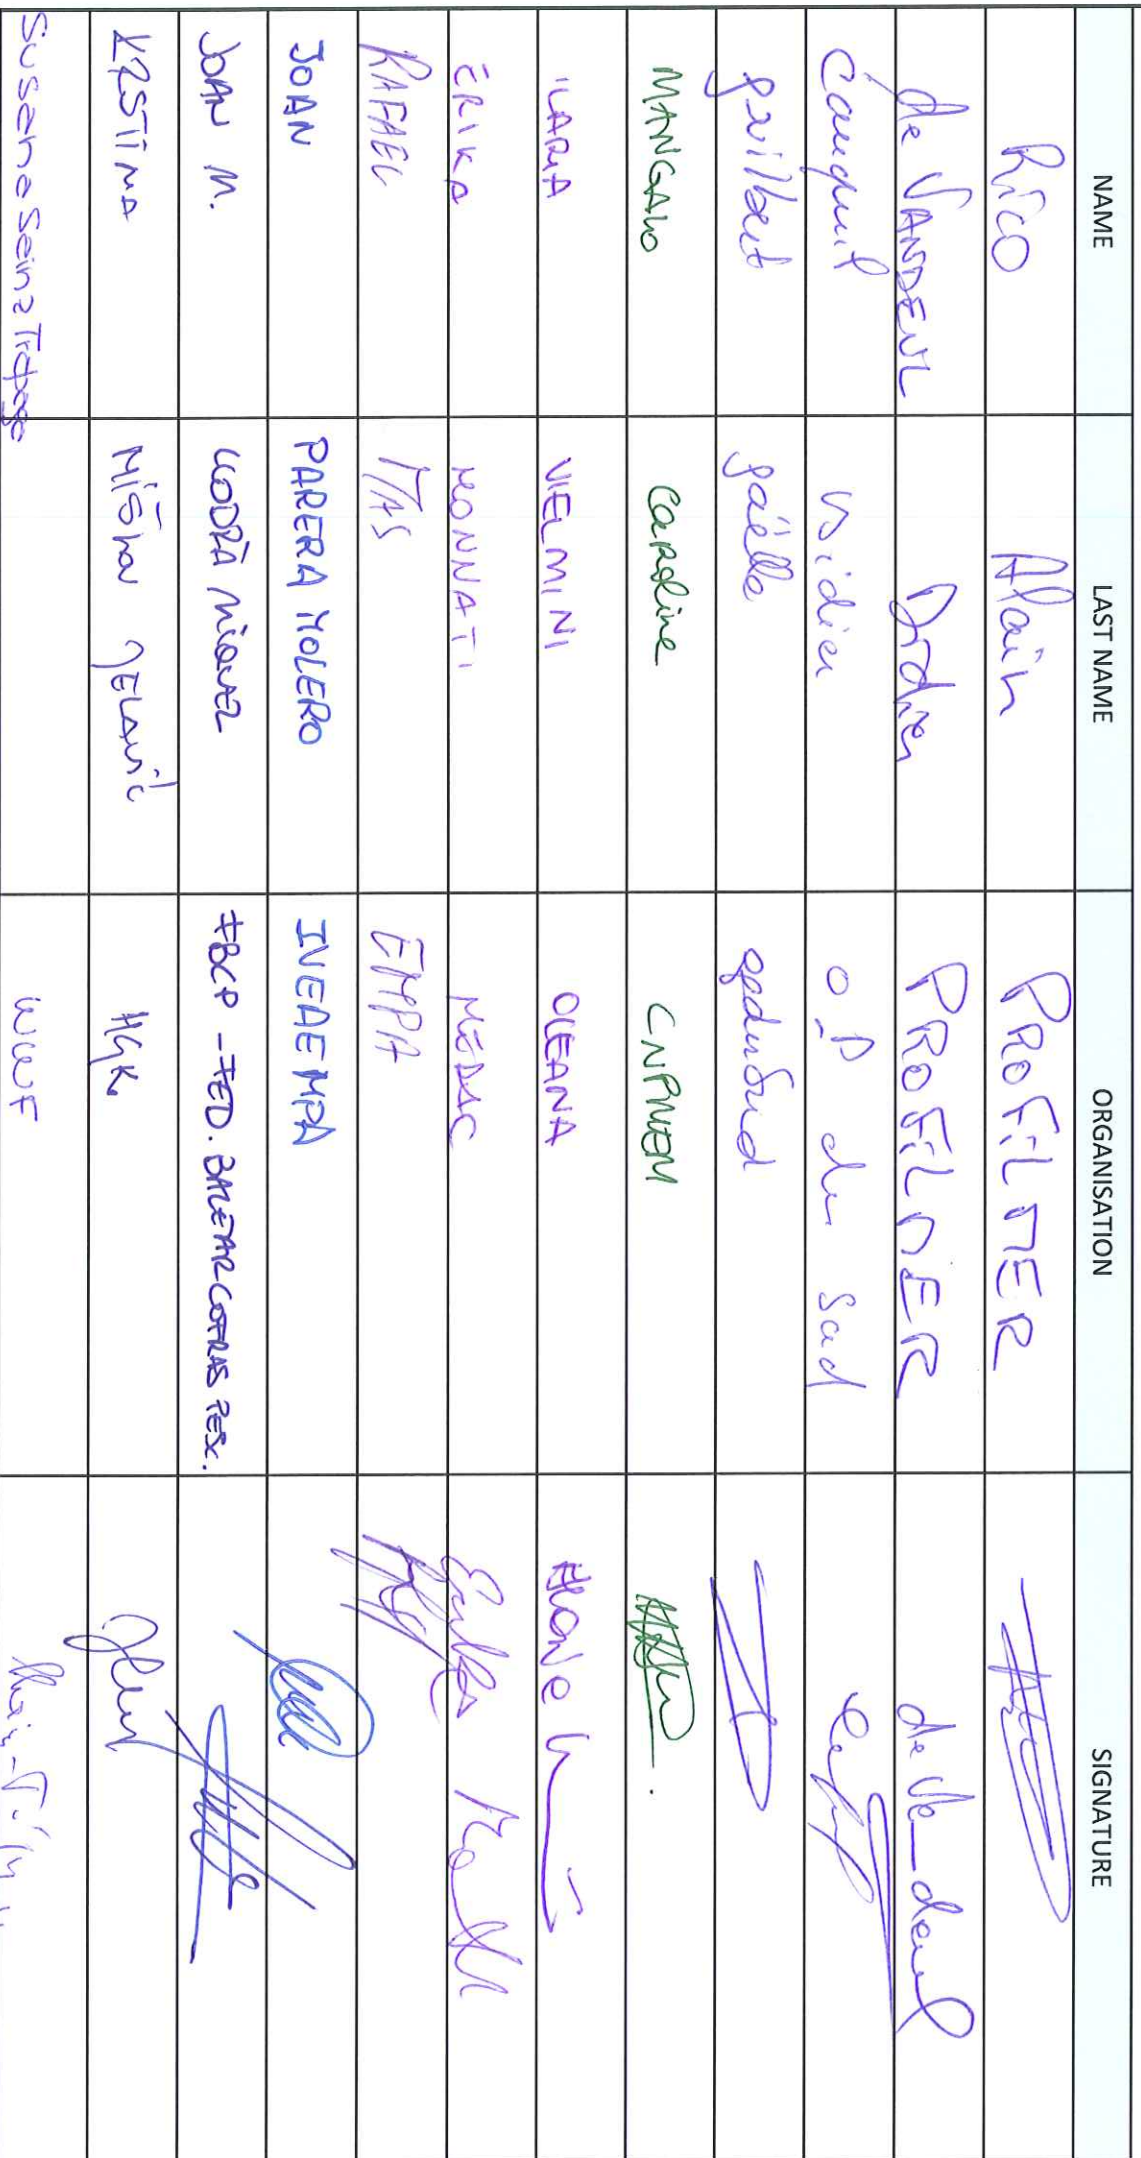 NAME LAST NAME ORGANISATION SIGNATURE
Rico Alain PROFILMER
de VANDEUL Didier PROFILMER de Vandeul
Cauquil Didier O.P du Sud
guilbert gaëlle opdusud
MANGALO Caroline CNPMEM
ILARIA VIELMINI OCEANA
ERIKA MONNATI MEDAC Erika
RAFAEL MAS EMPA
JOAN PARERA MOLERO INEAEMPA
JOAN M. LLODRÀ MIQUEL FBCP - FED. BALEAR COFRAS PESC.
KRSTINA MIŠURA JELAVIĆ HGK
Susana Sainz Trapaga WWF